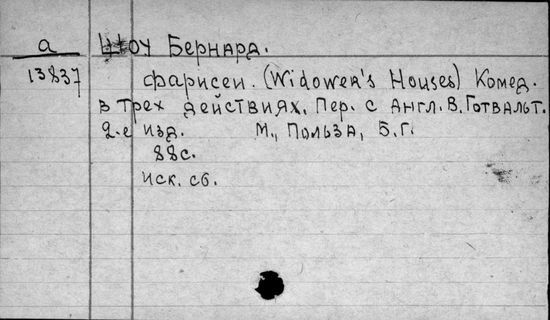 а Шоу Бернард.
13837 Фарисеи. (Widower's Houses) Комед.
в трех действиях. Пер. с англ. В. Готвальт.
2-е изд. М., Польза, Б.Г.
88с.
иск. сб.